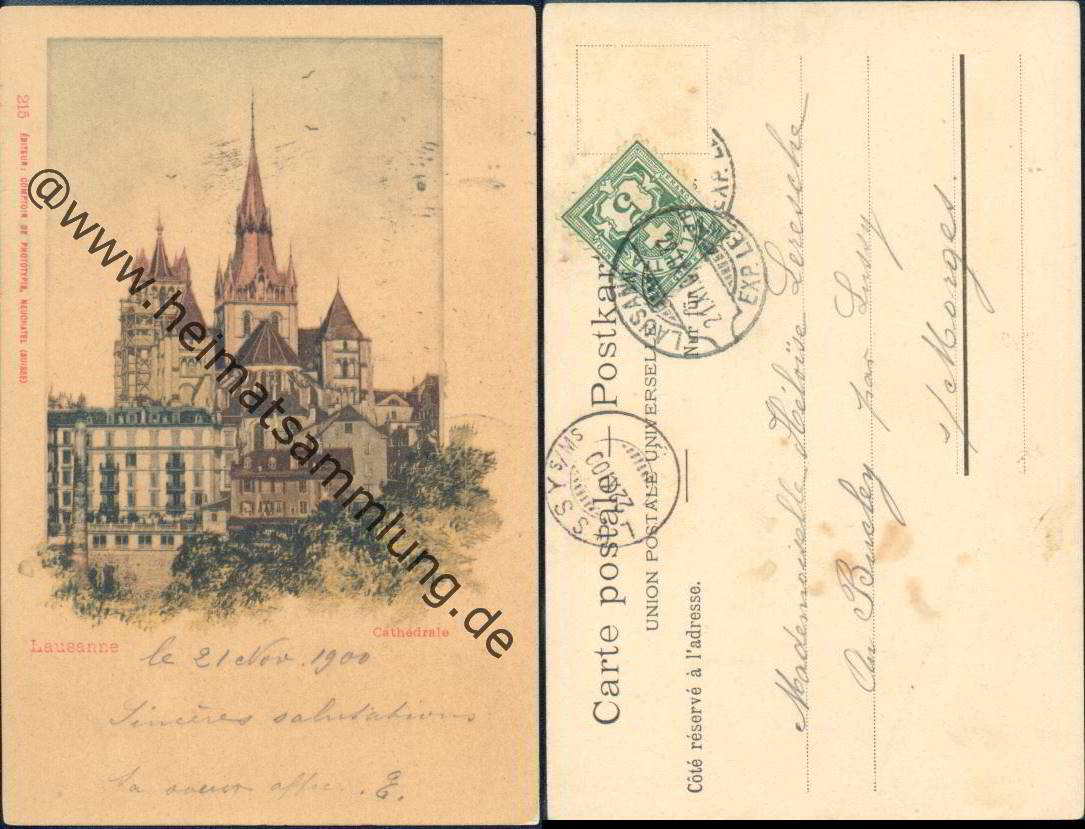 215 ÉDITEUR: COMPTOIR DE PHOTOTYPIE, NEUCHATEL (SUISSE)
@www.heimatsammlung.de
Lausanne
Cathédrale
le 21 Nov. 1900
Sincères salutations
sa soeur E.
Carte postale — Postkarte
UNION POSTALE UNIVERSELLE
Côté réservé à l'adresse.
Nur für
5
HELVETIA
LAUSANNE
EXP. LE
21.XI.00
EXP. LE
LUSSY S/MS
22.XI.00
Mademoiselle Héloïse Leresche
Au par Lussy
s/Morges.